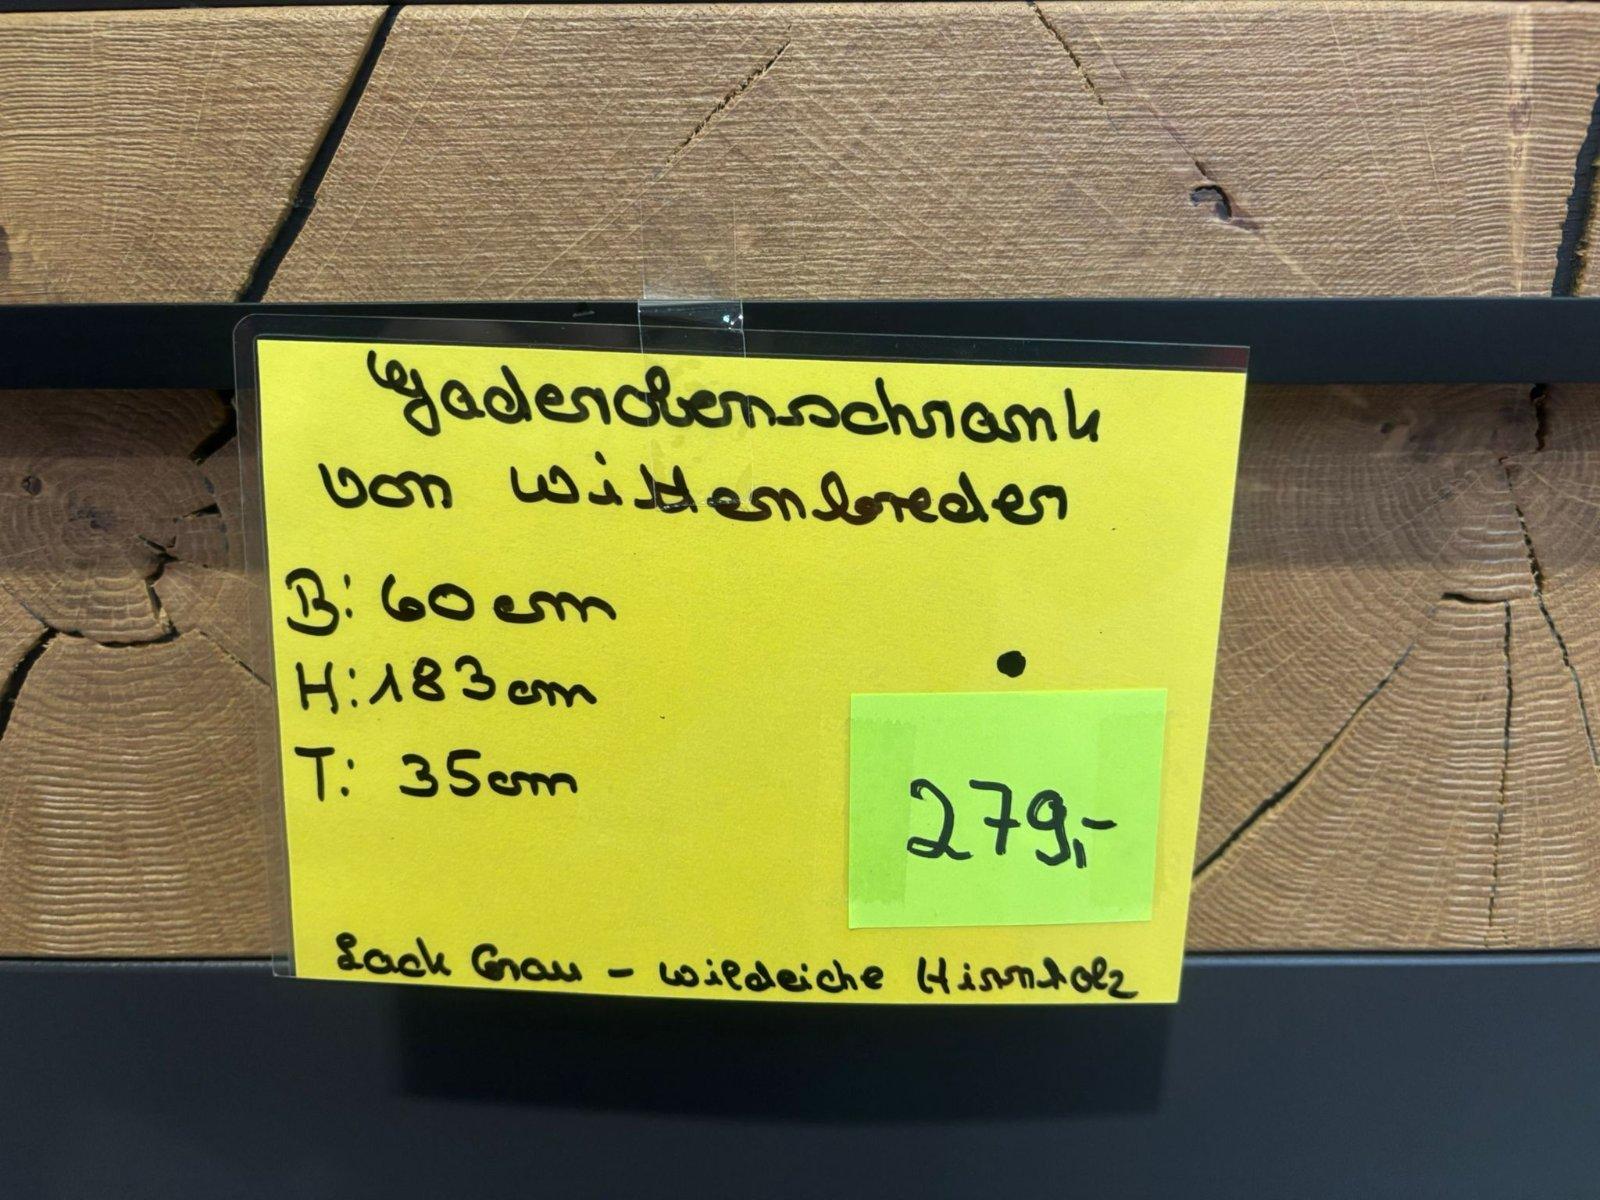 Gaderobenschrank
von Wittenbreder
B: 60 cm
H: 183 cm
T: 35 cm
279,-
Lack Grau - Wildeiche Hirnholz